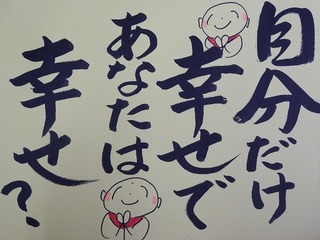 自分だけ
幸せで
あなたは
幸せ?